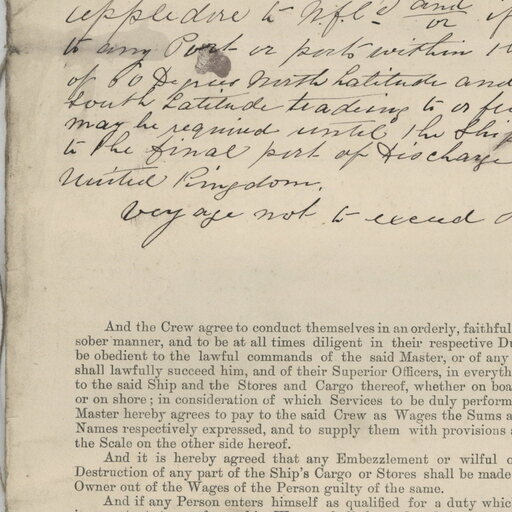 Appledore to Nfld and/or if
to any Port or ports within the
of 60 Degrees North Latitude and
South Latitude trading to or fr
may be required until the Ship
to the final port of Discharge
United Kingdom.
Voyage not to exceed
And the Crew agree to conduct themselves in an orderly, faithful
sober manner, and to be at all times diligent in their respective Du
be obedient to the lawful commands of the said Master, or of any
shall lawfully succeed him, and of their Superior Officers, in everyth
to the said Ship and the Stores and Cargo thereof, whether on boa
or on shore; in consideration of which Services to be duly perform
Master hereby agrees to pay to the said Crew as Wages the Sums a
Names respectively expressed, and to supply them with provisions a
the Scale on the other side hereof.
And it is hereby agreed that any Embezzlement or wilful o
Destruction of any part of the Ship's Cargo or Stores shall be made
Owner out of the Wages of the Person guilty of the same.
And if any Person enters himself as qualified for a duty whic